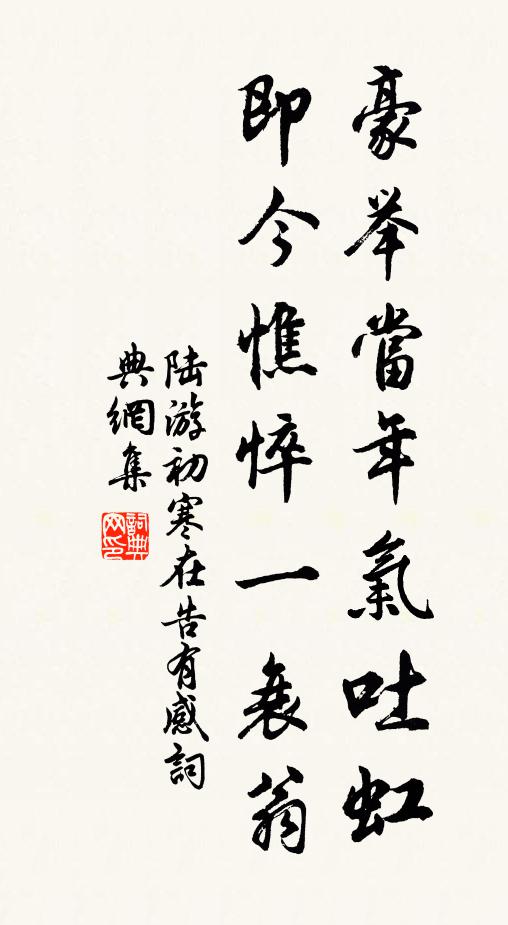 豪举當年氣吐虹
即今憔悴一衰翁
陆游初寒在告有感詞
典網集
詞典
网印